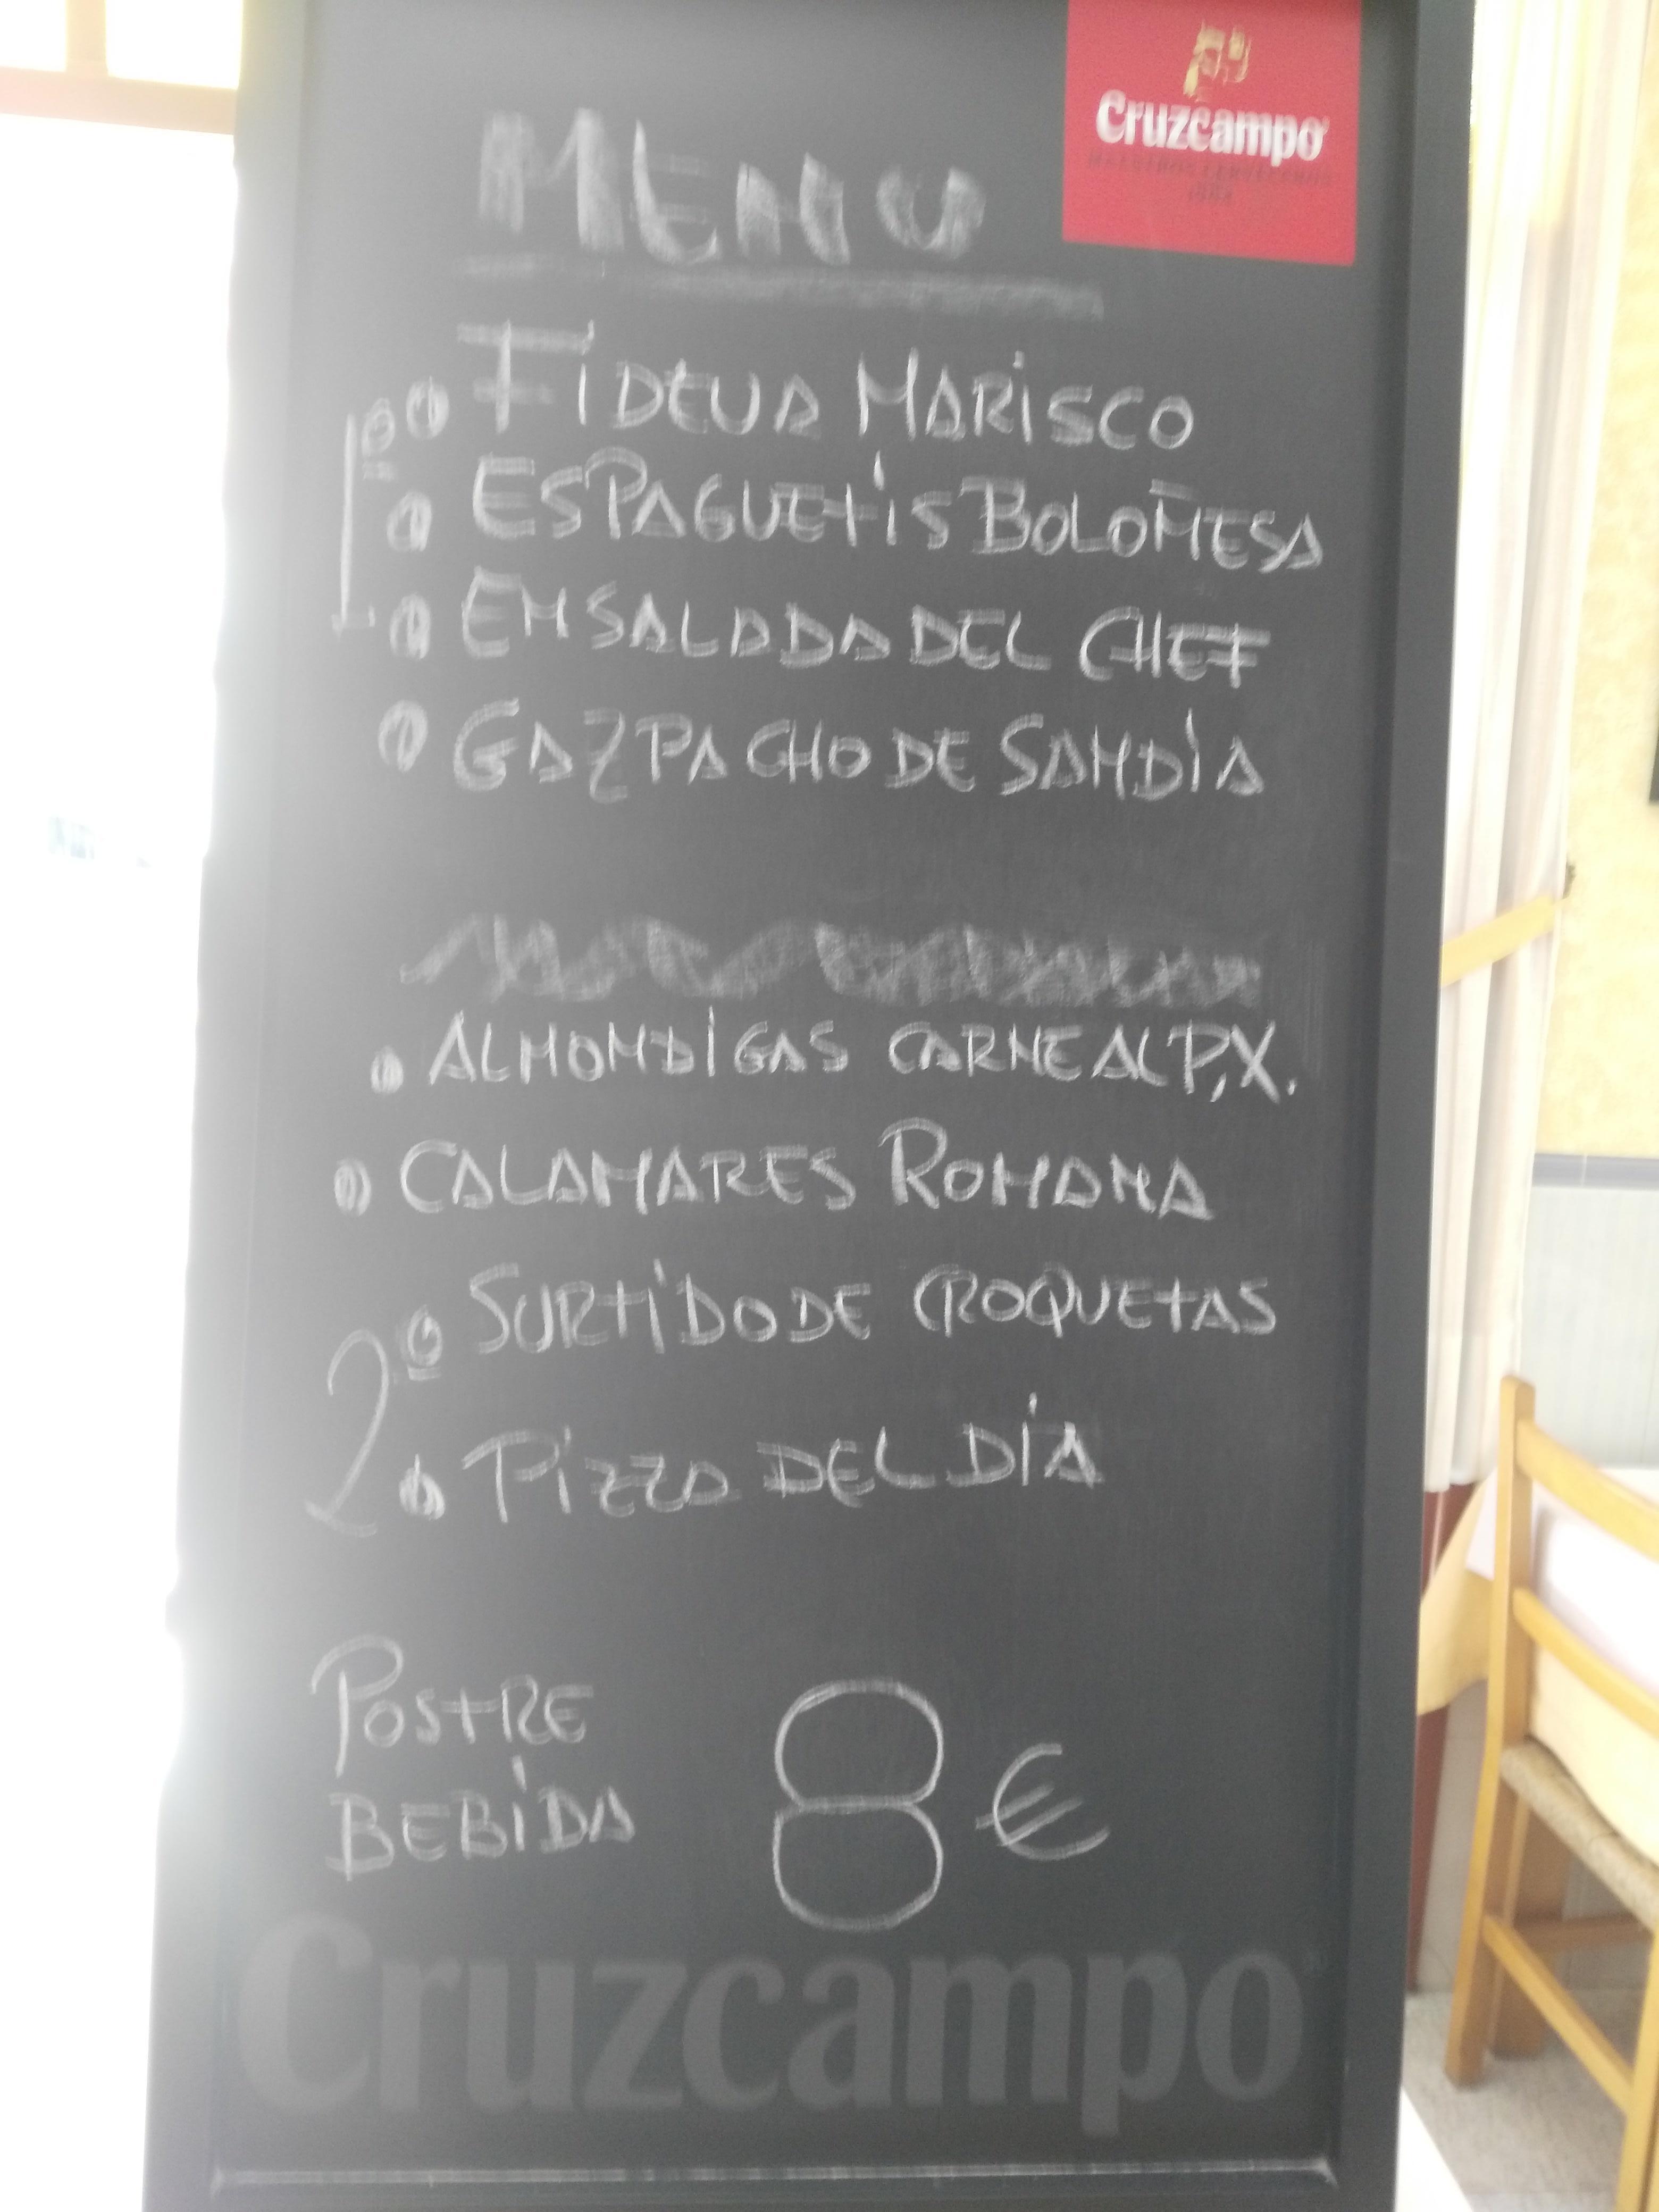 Cruzcampo
MAESTROS CERVECEROS
MENU
1º FIDEUA MARISCO
ESPAGUETIS BOLOÑESA
ENSALADA DEL CHEF
GAZPACHO DE SANDÍA
ALMONDIGAS CARNE AL P,X.
CALAMARES ROMANA
2º SURTIDO DE CROQUETAS
PIZZA DEL DÍA
POSTRE
BEBIDA
8 €
Cruzcampo